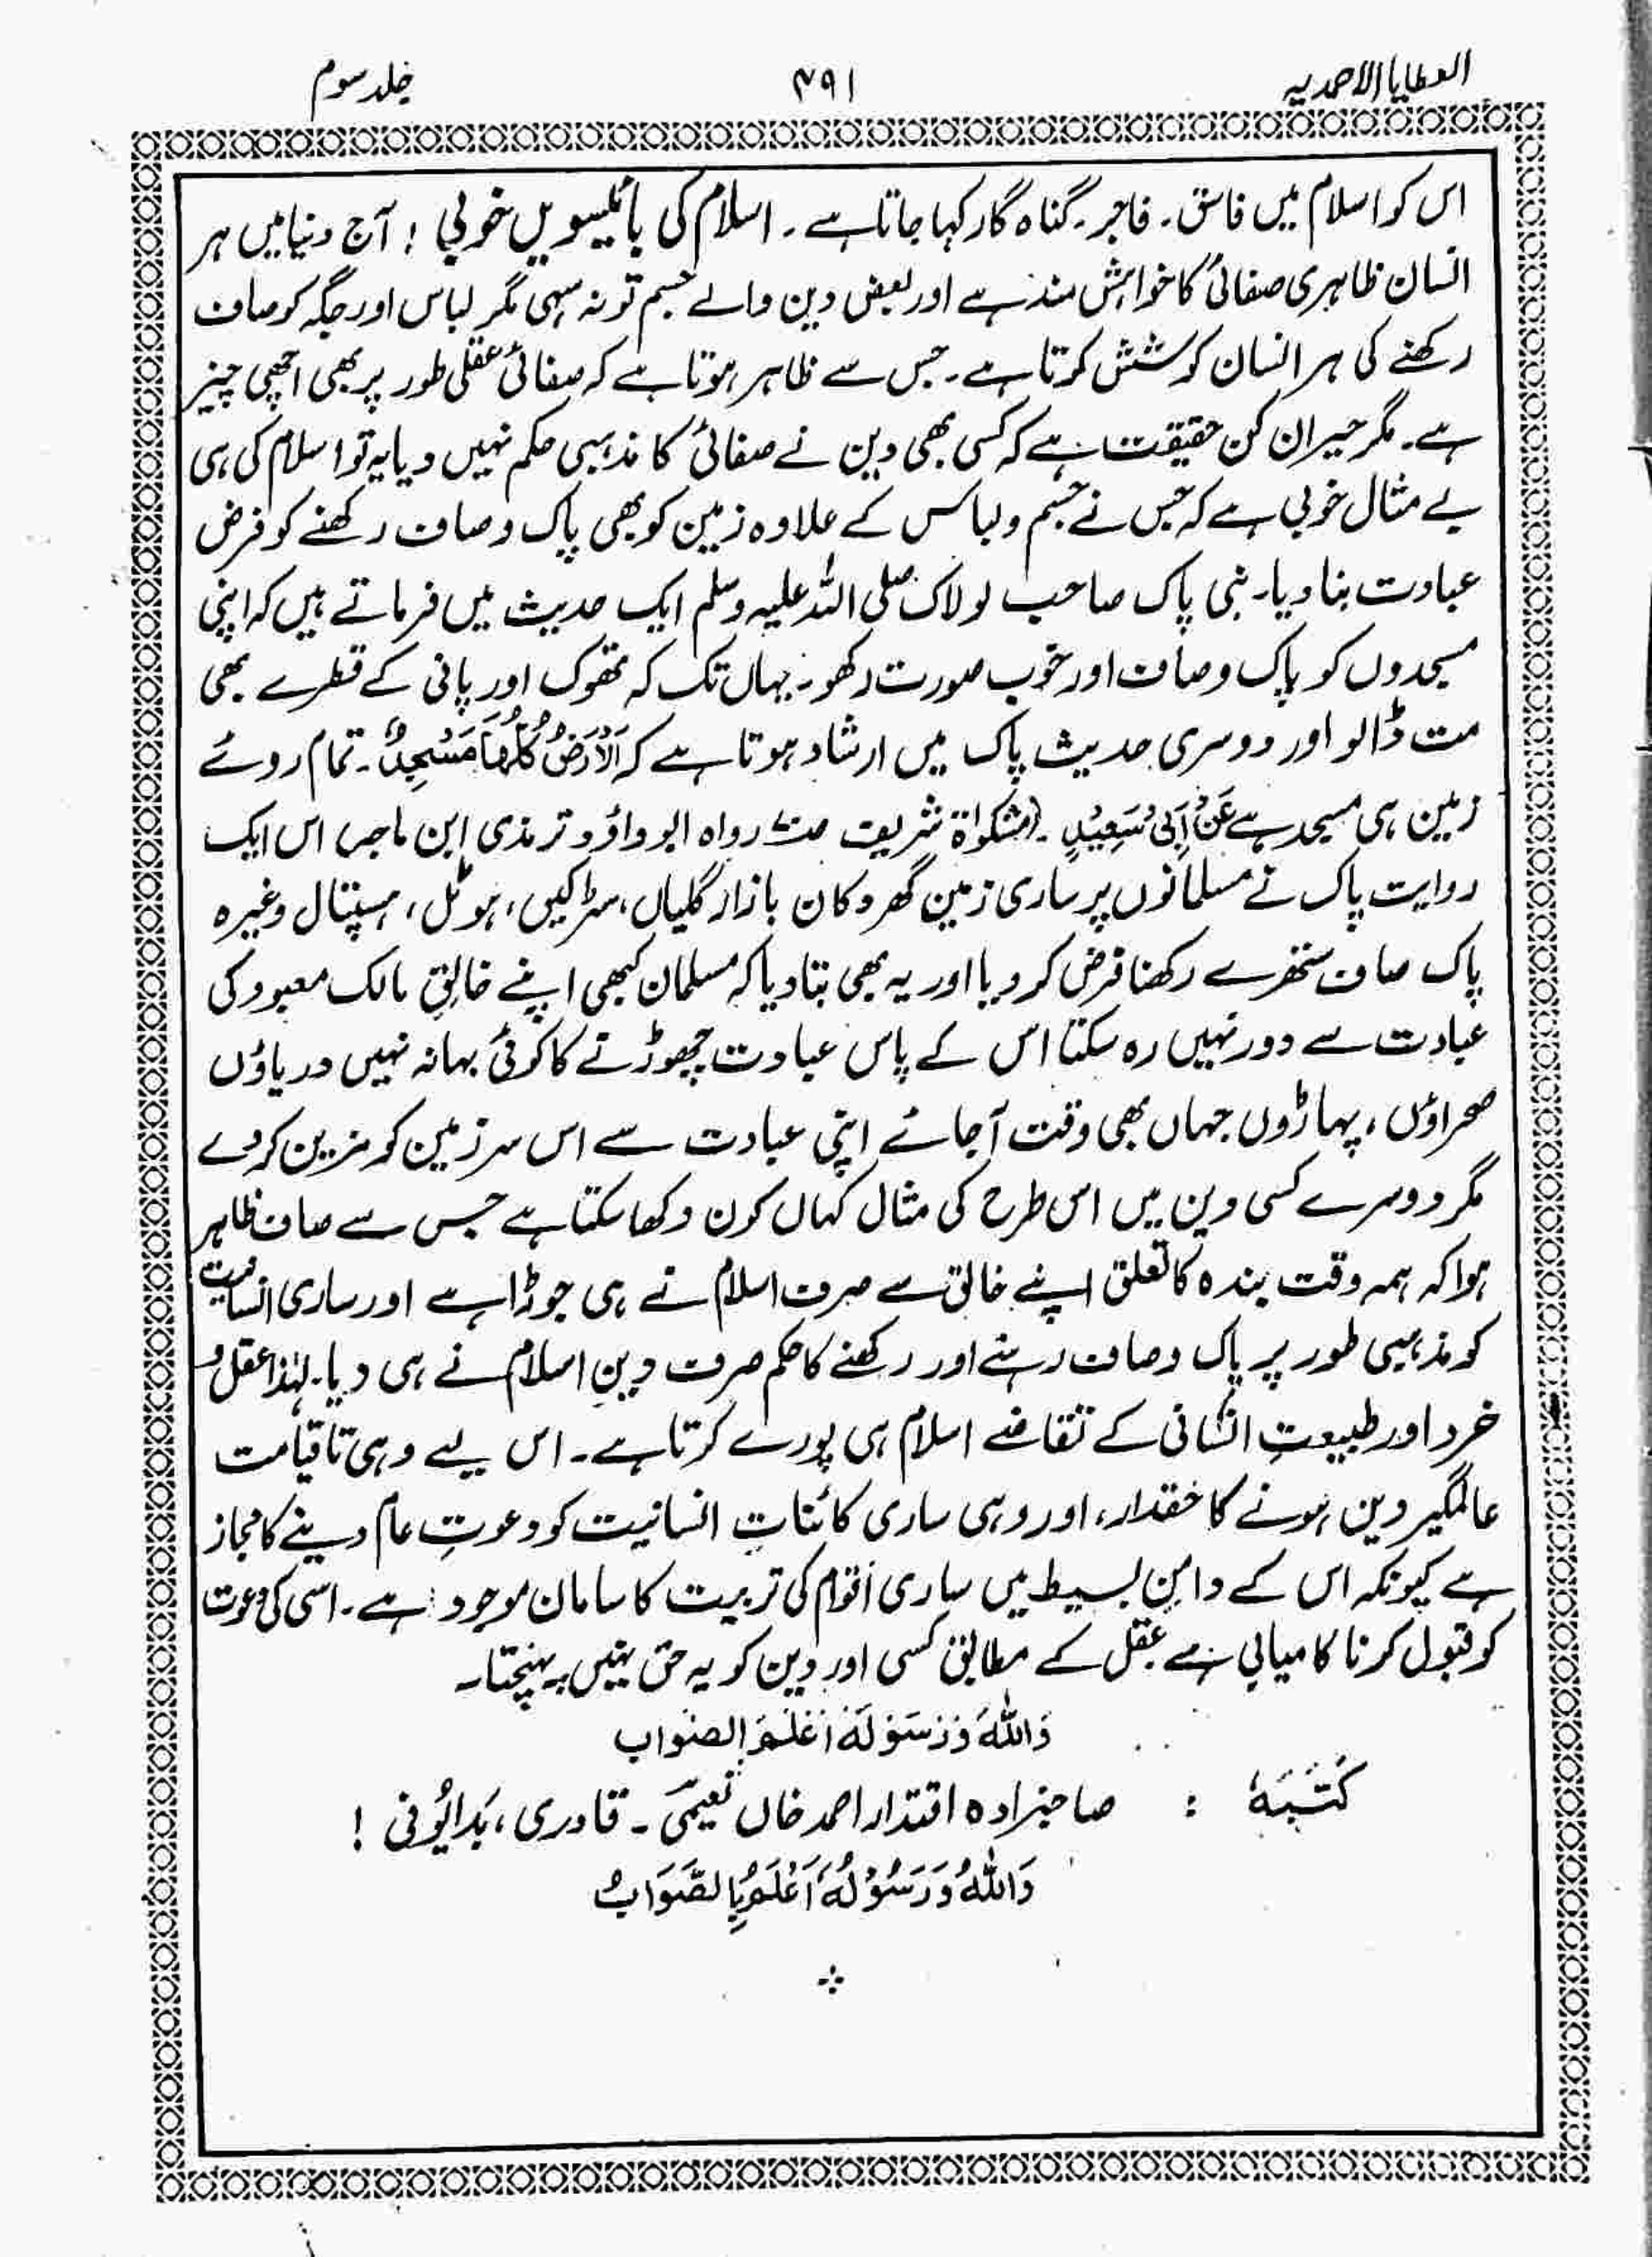 العطایا الاحمدیہ ۴۹۱ جلد سوم
اس کو اسلام میں فاسق ۔ فاجر ۔ گناہ گار کہا جاتا ہے ۔ اسلام کی بائیسویں خوبی ! آج دنیا میں ہر
انسان ظاہری صفائی کا خواہش مند ہے اور بعض دین والے جسم تو نہ سہی مگر لباس اور جگہ کو صاف
رکھنے کی ہر انسان کوشش کرتا ہے ۔ جس سے ظاہر ہوتا ہے کہ صفائی عقلی طور پر بھی اچھی چیز
ہے ۔ مگر حیران کن حقیقت ہے کہ کسی بھی دین نے صفائی کا مذہبی حکم نہیں دیا یہ تو اسلام کی ہی
بے مثال خوبی ہے کہ جس نے جسم و لباس کے علاوہ زمین کو بھی پاک و صاف رکھنے کو فرض
عبادت بنا دیا ۔ نبی پاک صاحب لولاک صلی اللہ علیہ وسلم ایک حدیث میں فرماتے ہیں کہ اپنی
مسجدوں کو پاک و صاف اور خوب صورت رکھو ۔ یہاں تک کہ تھوک اور پانی کے قطرے بھی
مت ڈالو اور دوسری حدیث پاک میں ارشاد ہوتا ہے کہ اَلْاَرْضُ كُلُّهَا مَسْجِدٌ ۔ تمام روئے
زمین ہی مسجد ہے عَنْ اَبِیْ سَعِیْدٍ ۔ (مشکواۃ شریف رواہ ابو داؤد و ترمذی ابن ماجہ اس ایک
روایت پاک نے مسلمانوں پر ساری زمین گھر دکان بازار گلیاں، سڑکیں، ہوٹل، ہسپتال وغیرہ
پاک صاف ستھرے رکھنا فرض کر دیا اور یہ بھی بتا دیا کہ مسلمان کبھی اپنے خالقِ مالک معبود کی
عبادت سے دور نہیں رہ سکتا اس کے پاس عبادت چھوڑنے کا کوئی بہانہ نہیں دریاؤں
صحراؤں، پہاڑوں جہاں بھی وقت آجائے اپنی عبادت سے اس سرزمین کو مزین کر دے
مگر دوسرے کسی دین میں اس طرح کی مثال کہاں کون دکھا سکتا ہے جس سے صاف ظاہر
ہوا کہ ہمہ وقت بندہ کا تعلق اپنے خالق سے صرف اسلام نے ہی جوڑا ہے اور ساری انسانیت
کو مذہبی طور پر پاک و صاف رہنے اور رکھنے کا حکم صرف دینِ اسلام نے ہی دیا ۔ لہٰذا عقل و
خرد اور طبیعتِ انسانی کے تقاضے اسلام ہی پورے کرتا ہے ۔ اس لیے وہی تا قیامت
عالمگیر دین ہونے کا حقدار، اور وہی ساری کائناتِ انسانیت کو دعوتِ عام دینے کا مجاز
ہے کیونکہ اس کے دامنِ بسیط میں ساری اقوام کی تربیت کا سامان موجود ہے ۔ اسی کی دعوت
کو قبول کرنا کامیابی ہے عقل کے مطابق کسی اور دین کو یہ حق نہیں پہنچتا ۔
وَاللّٰهُ وَرَسُوْلَهٗ اَعْلَمُ الصَّوَاب
كَتَبَهٗ : صاحبزادہ اقتدار احمد خاں نعیمی ۔ قادری، بدایُونی !
وَاللّٰهُ وَرَسُوْلُهٗ اَعْلَمُ بِالصَّوَابُ